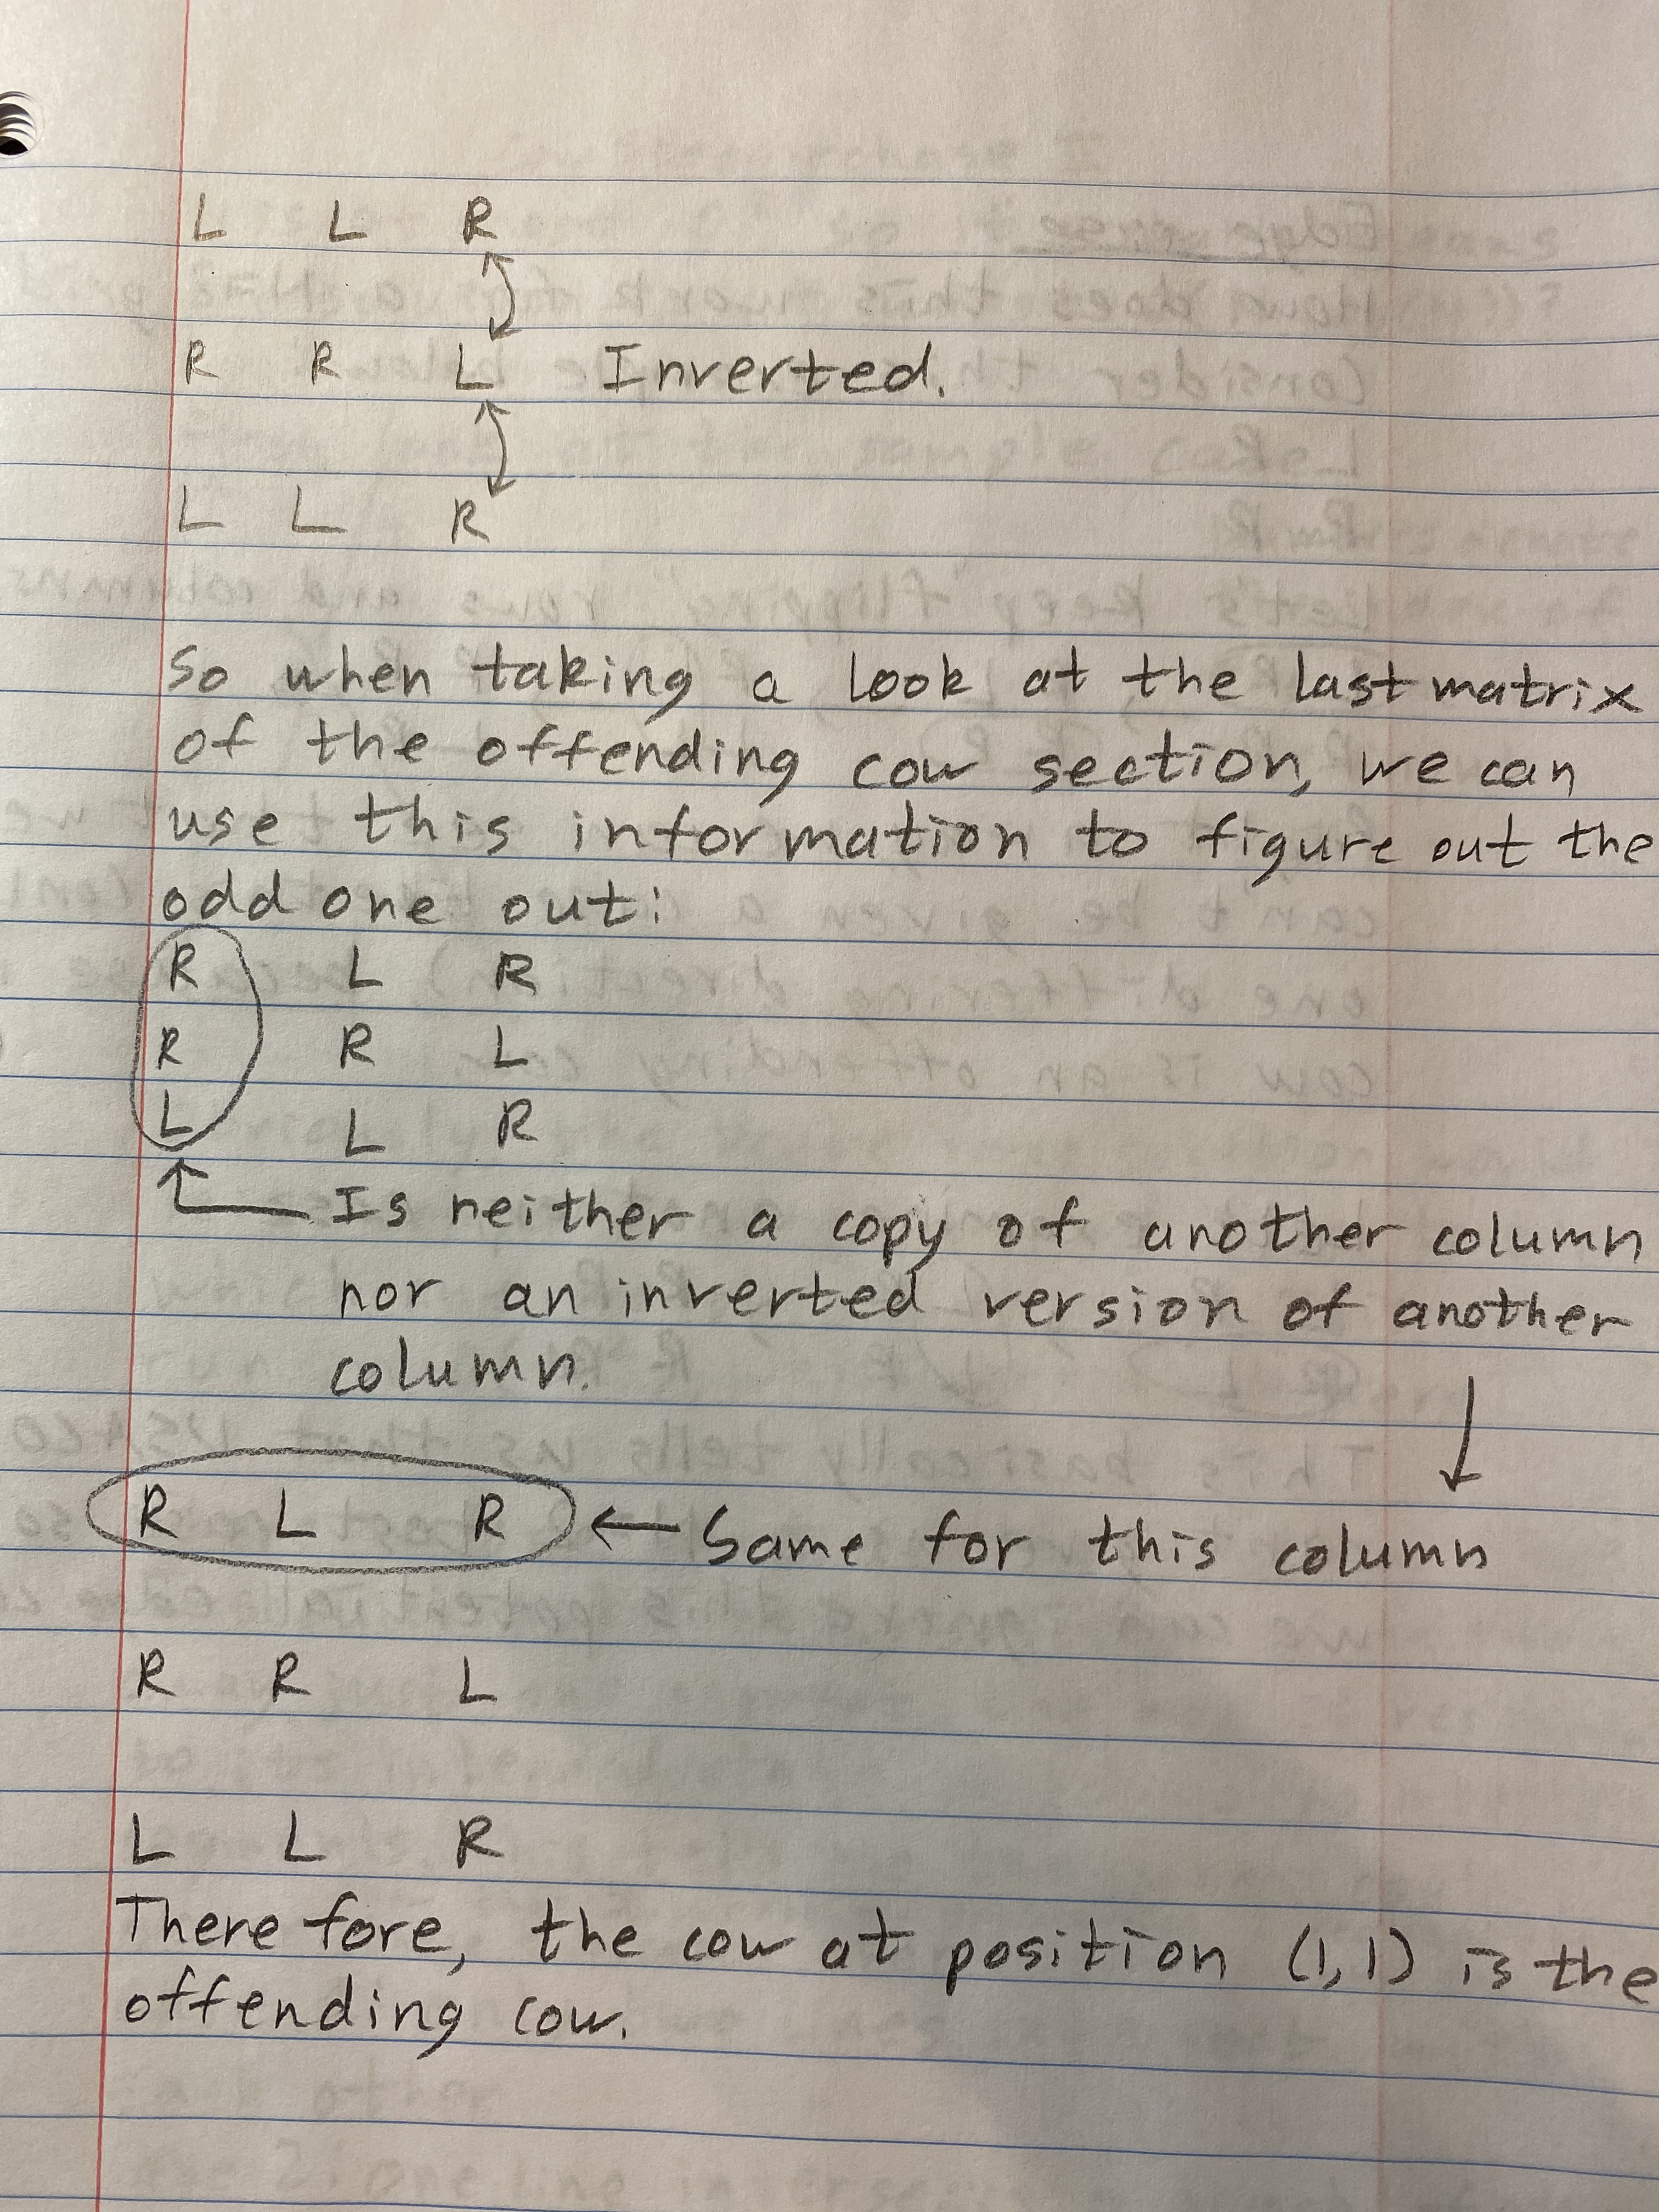 L L R
R R L Inverted.
L L R
So when taking a look at the last matrix
of the offending cow section, we can
use this information to figure out the
odd one out:
R L R
R R L
L L R
Is neither a copy of another column
nor an inverted version of another
column.
R L R ← Same for this column
R R L
L L R
Therefore, the cow at position (1,1) is the
offending cow.